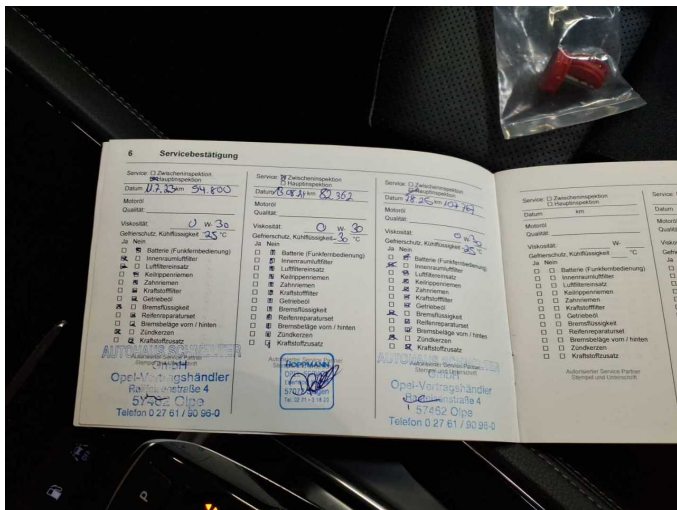 6 Servicebestätigung
Service: Zwischeninspektion
Hauptinspektion
Datum 11.7.23 km 54.800
Motoröl
Qualität:
Viskosität: 0 W- 30
Gefrierschutz, Kühlflüssigkeit -25 °C
Ja Nein
Batterie (Funkfernbedienung)
Innenraumluftfilter
Luftfiltereinsatz
Keilrippenriemen
Zahnriemen
Kraftstofffilter
Getriebeöl
Bremsflüssigkeit
Reifenreparaturset
Bremsbeläge vorn / hinten
Zündkerzen
Kraftstoffzusatz
Autorisierter Service Partner
AUTOHAUS
GmbH
Opel-Vertragshändler
straße 4
57462 Olpe
Telefon 0 27 61 / 90 96-0
Service: Zwischeninspektion
Hauptinspektion
Datum km 82.362
Motoröl
Qualität:
Viskosität: 0 W- 30
Gefrierschutz, Kühlflüssigkeit -30 °C
Ja Nein
Batterie (Funkfernbedienung)
Innenraumluftfilter
Luftfiltereinsatz
Keilrippenriemen
Zahnriemen
Kraftstofffilter
Getriebeöl
Bremsflüssigkeit
Reifenreparaturset
Bremsbeläge vorn / hinten
Zündkerzen
Kraftstoffzusatz
Autorisierter Service Partner
Stempel und Unterschrift
HOPPMANN
Service: Zwischeninspektion
Hauptinspektion
Datum km
Motoröl
Qualität:
Viskosität: 0 W- 30
Gefrierschutz, Kühlflüssigkeit -25 °C
Ja Nein
Batterie (Funkfernbedienung)
Innenraumluftfilter
Luftfiltereinsatz
Keilrippenriemen
Zahnriemen
Kraftstofffilter
Getriebeöl
Bremsflüssigkeit
Reifenreparaturset
Bremsbeläge vorn / hinten
Zündkerzen
Kraftstoffzusatz
Autorisierter Service Partner
Stempel und Unterschrift
AUTOHAUS
GmbH
Opel-Vertragshändler
straße 4
57462 Olpe
Telefon 0 27 61 / 90 96-0
Service: Zwischeninspektion
Hauptinspektion
Datum km
Motoröl
Qualität:
Viskosität: W-
Gefrierschutz, Kühlflüssigkeit °C
Ja Nein
Batterie (Funkfernbedienung)
Innenraumluftfilter
Luftfiltereinsatz
Keilrippenriemen
Zahnriemen
Kraftstofffilter
Getriebeöl
Bremsflüssigkeit
Reifenreparaturset
Bremsbeläge vorn / hinten
Zündkerzen
Kraftstoffzusatz
Autorisierter Service Partner
Stempel und Unterschrift
Service:
Datum
Motoröl
P